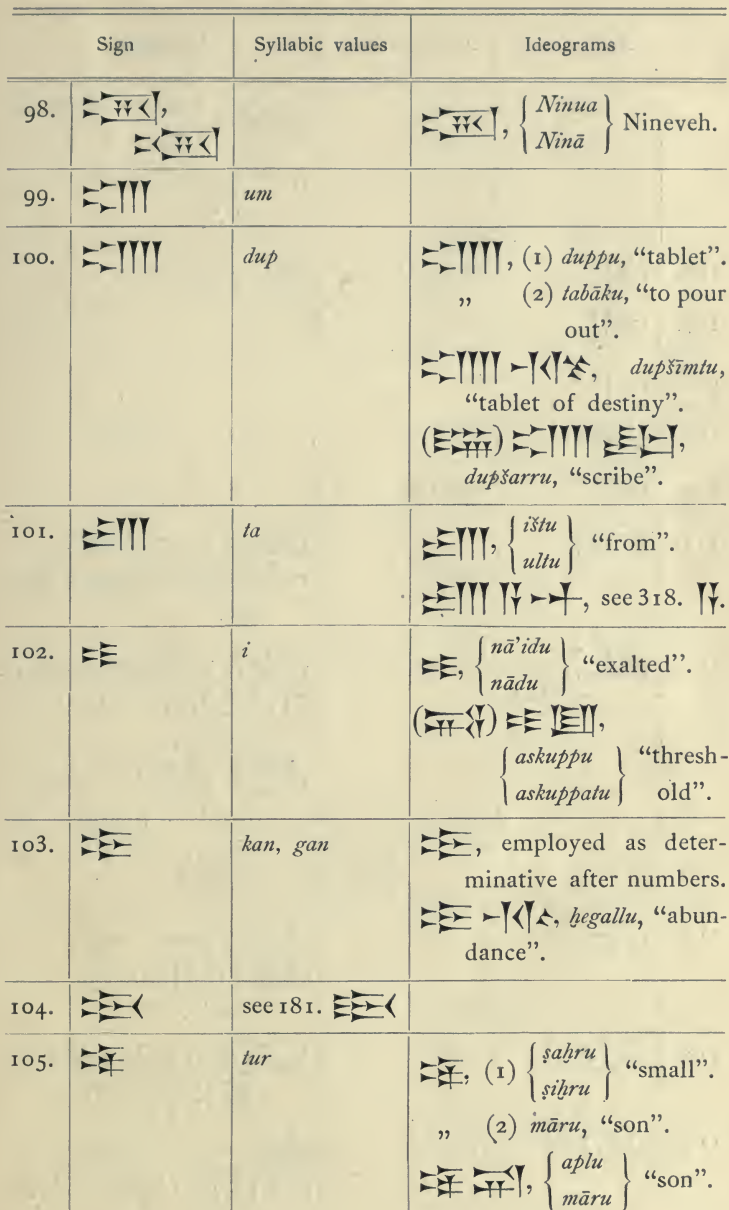 Sign Syllabic values Ideograms
98. 𒀏, 𒀏, { Ninua
Ninā } Nineveh.
99. 𒌝 um
100. 𒁾 dup 𒁾, (1) duppu, “tablet”.
„ (2) tabāku, “to pour
out”.
𒁾 𒉆, dupšīmtu,
“tablet of destiny”.
(𒇽) 𒁾 𒊬,
dupšarru, “scribe”.
101. 𒋫 ta 𒋫, { ištu
ultu } “from”.
𒋫 𒀀 𒀭, see 318. 𒀀.
102. 𒄿 i 𒄿, { nā’idu
nādu } “exalted”.
(𒎎) 𒄿 𒇻,
{ askuppu
askuppatu } “thresh-
old”.
103. 𒃶 kan, gan 𒃶, employed as deter-
minative after numbers.
𒃶 𒅅, ḫegallu, “abun-
dance”.
104. 𒄰 see 181. 𒄰
105. 𒌉 tur 𒌉, (1) { ṣaḫru
ṣiḫru } “small”.
„ (2) māru, “son”.
𒌉 𒍑, { aplu
māru } “son”.